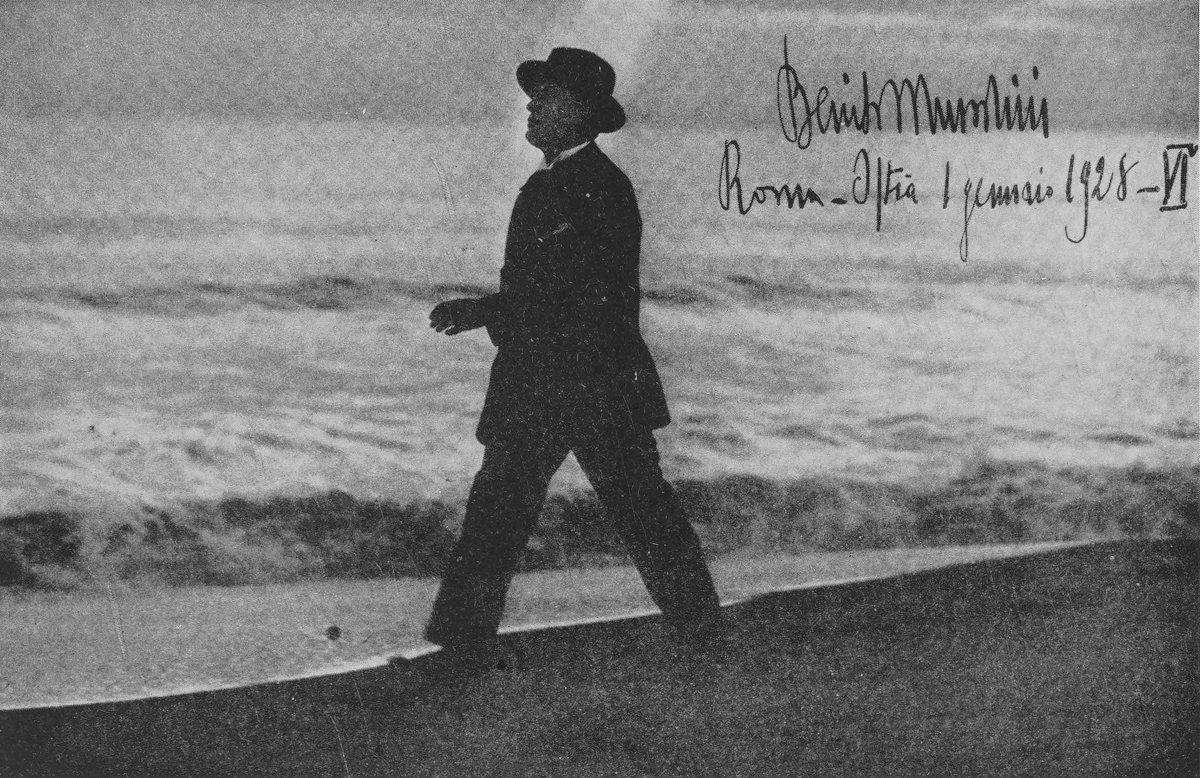 Benito Mussolini
Roma - Ostia 1 gennaio 1928 - VI